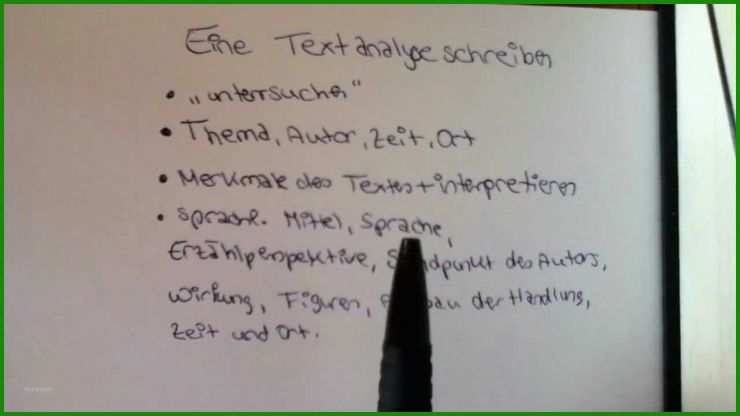 Eine Textanalyse schreiben
• „untersuchen"
• Thema, Autor, Zeit, Ort
• Merkmale des Textes + interpretieren
• sprachl. Mittel, Sprache,
Erzählperspektive, des Autors,
Wirkung, Figuren, der Handlung,
Zeit und Ort.